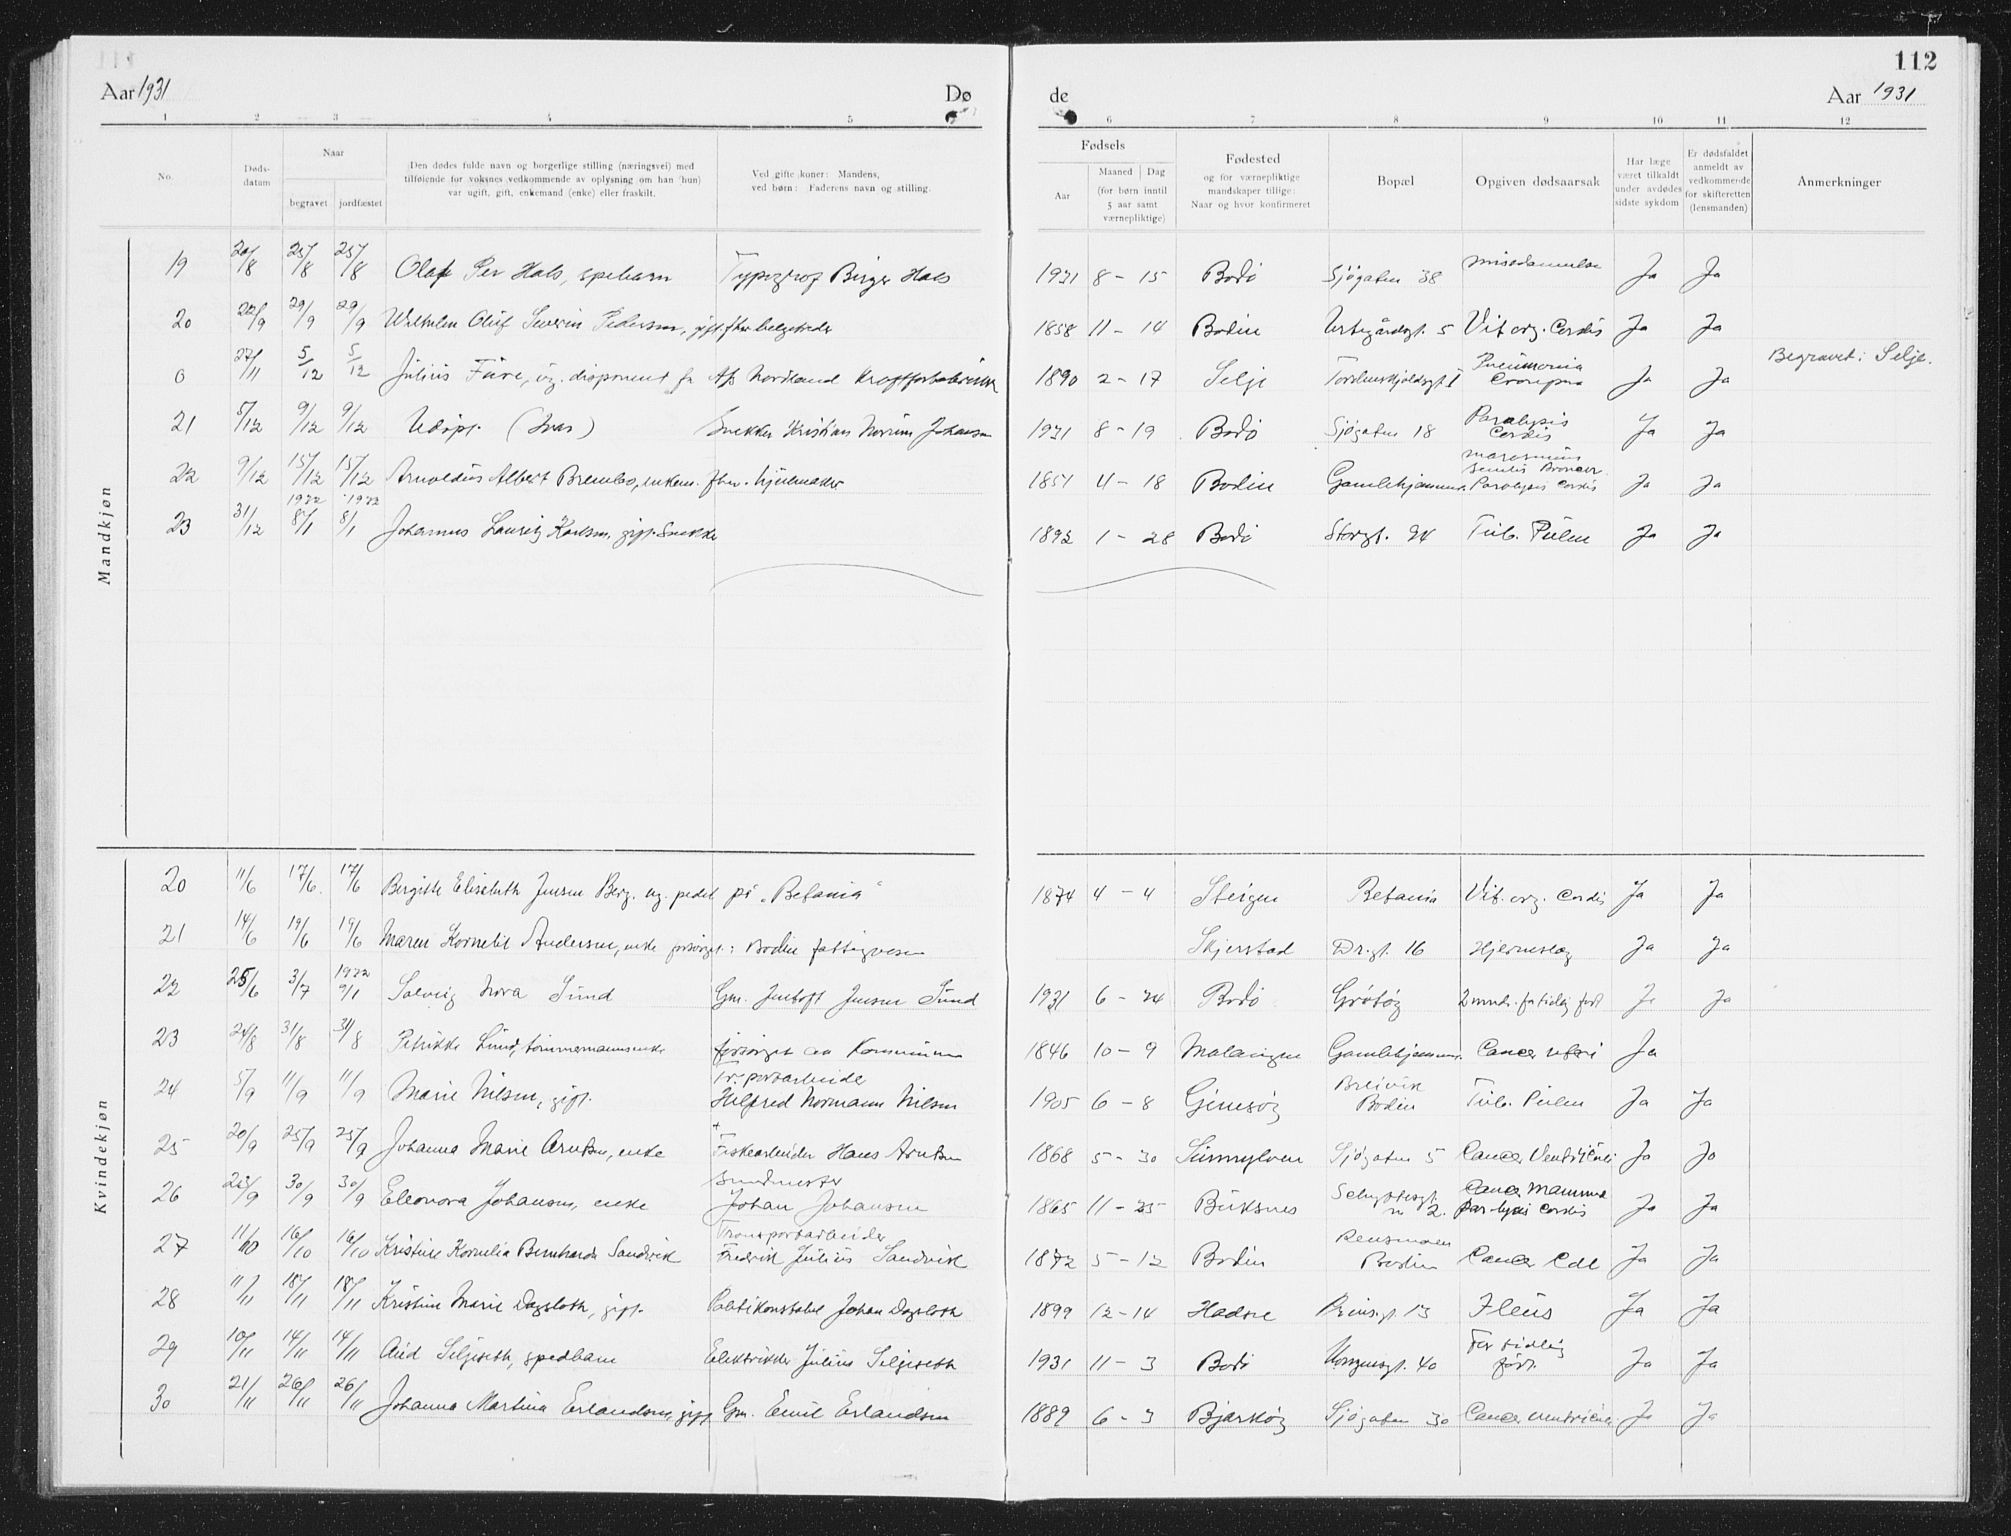 112
Aar 1931 Dø de Aar 1931
1 2 3 4 5 6 7 8 9 10 11 12
No. Døds-datum Naar begravet jordfæstet Den dødes fulde navn og borgerlige stilling (næringsvei) med tilføiende for voksnes vedkommende av oplysning om han (hun) var ugift, gift, enkemand (enke) eller fraskilt. Ved gifte koner: Mandens, ved børn: Faderens navn og stilling. Fødsels Aar Maaned Dag (for børn inntil 5 aar samt værnepliktige) Fødested og for værnepliktige mandskaper tillige: Naar og hvor konfirmeret Bopæl Opgiven dødsaarsak Har læge været tilkaldt under avdødes sidste sykdom Er dødsfaldet anmeldt av vedkommende for skifteretten (lensmanden) Anmerkninger
Mandkjøn
19 20/8 25/8 25/8 Olaf Per Hals, spebarn Typograf Birger Hals 1931 8 - 15 Bodö Sjögaten 38 misdannelse Ja Ja
20 22/9 29/9 29/9 Wilhelm Oluf Severin Pedersen, gift, fhv. 1858 11 - 14 Bodin 5 Vit. org. Cordis Ja Ja
0 27/11 5/12 5/12 Julius Färe, ug. disponent for A/s Nordland Kraftforbindelse 1890 2 - 17 Selje Tordenskjoldsgt Pneumonia Crouposa Ja Ja Begravet i Selje.
21 5/12 9/12 9/12 Udöpt. Snekker Kristian Johansen 1931 8 - 19 Bodö Sjögaten 18 Paralysis Cordis Ja Ja
22 9/12 15/12 15/12 Arnoldus Albert Brembo, enkem. fhv. hjulmaker 1851 4 - 18 Bodin Gamlehjemmet marasmus senilis Paralysis Cordis Ja Ja
23 31/12 1932 8/1 1932 8/1 Johannes Lauritz Karlsen, gift. Snekker 1892 1 - 28 Bodö Storgt. 94 Tub. Pulm Ja Ja
Kvindekjøn
20 11/6 17/6 17/6 Bergitte Elisabeth Jensen Berg, ug. på „Betania“ 1874 4 - 4 Steigen Betania Vit. org. Cordis Ja Ja
21 14/6 19/6 19/6 Maren Kornelie Andersen, enke forsörget i Bodin fattigvesen Skjerstad Dr.gt. 16 Hjerneslag Ja Ja
22 25/6 3/7 1932 9/1 Solveig Nora Sund Gm. Jentoft Jensen Sund 1931 6 - 24 Bodö Grötöy 2 mndr. for tidlig född Ja Ja
23 24/8 31/8 31/8 Petrikke Lund, tömmermannsenke forsörget av Kommunen 1846 10 - 9 Malangen Gamlehjemmet Cancer uteri Ja
24 5/9 11/9 11/9 Marie Nilsen, gift. Tr.portarbeider Hilfred Normann Nilsen 1905 6 - 8 Gimsöy Breivik Bodin Tub. Pulm Ja Ja
25 20/9 25/9 25/9 Johanna Marie Arntsen, enke + Fiskearbeider Hans Arntsen 1868 5 - 30 Sunnylven Sjögaten 5 Cancer Ventriculi Ja Ja
26 25/9 30/9 30/9 Eleonora Johansen, enke Johan Johansen 1865 11 - 25 Buksnes 2. Cancer Mamma paralysis Cordis Ja Ja
27 11/10 16/10 16/10 Kristine Kornelia Bernharda Sandvik Transportarbeider Fredrik Julius Sandvik 1872 5 - 12 Bodin Rensåsen Bodin Cancer Col Ja Ja
28 11/11 18/11 18/11 Kristine Marie Dagsloth, gift. Politikonstabel Johan Dagsloth 1899 12 - 14 Hadsel Prinsgt. 13 Ileus Ja Ja
29 10/11 14/11 14/11 Aud Seljeseth, spedbarn Elektriker Julius Seljeseth 1931 11 - 3 Bodö Kongensgt. 40 For tidlig född Ja Ja
30 21/11 26/11 26/11 Johanna Martina Erlandsen, gift Gm. Emil Erlandsen 1889 6 - 3 Bjarköy Sjögaten 30 Cancer ventriculi Ja Ja